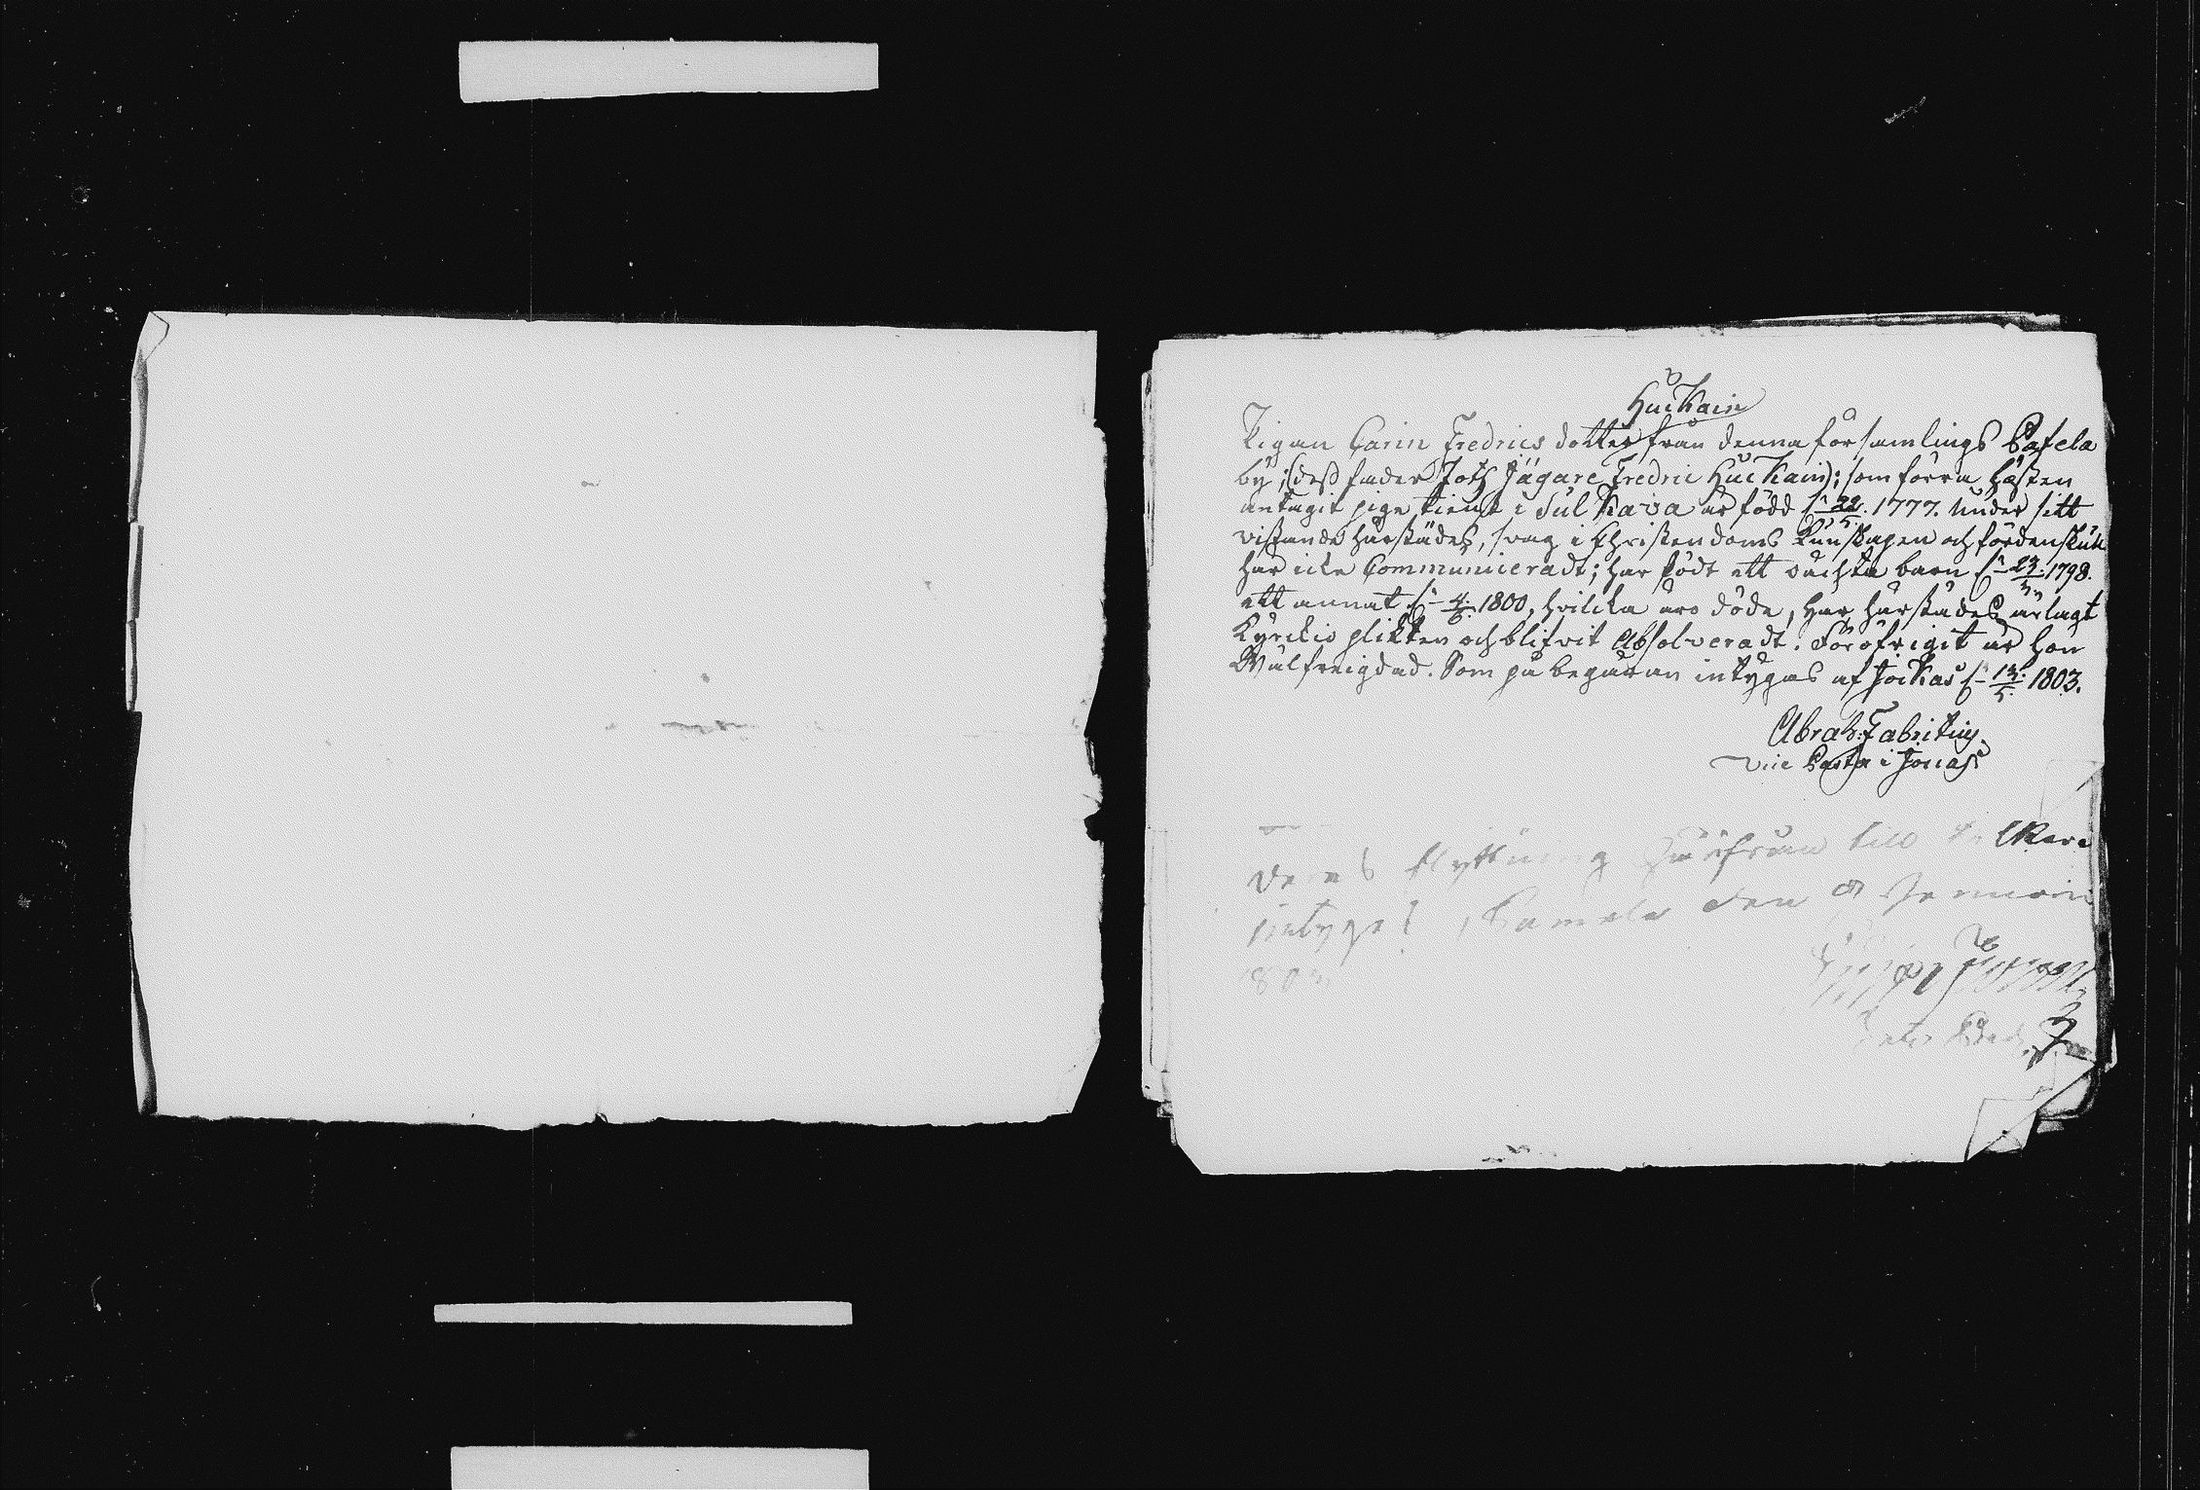 Huckain
Pigan Carin Fredrics dotter från denna församlings Pasela
by; (dess fader Fots Jägare Fredric Huckain); som förra hösten
antagit pige tienst i Sulkava är född d. 22/5. 1777. Under sitt
vistande härstädes, svag i Christendoms kunskapen och fördenskull
har icke Communiceradt; har födt ett oächta barn d. 23/3. 1798.
ett annat d. 4/6. 1800, hvilcka äro döde, har härstädes aflagt
Kyrckio plikten och blifvit Absolveradt. För öfrigit är hon
Wälfreigdad. Som på begäran intygas af Jockas d. 13/5. 1803.
Abrah: Fabritius
vice Pastor i Jockas
flyttning härifrån till
intygas, den